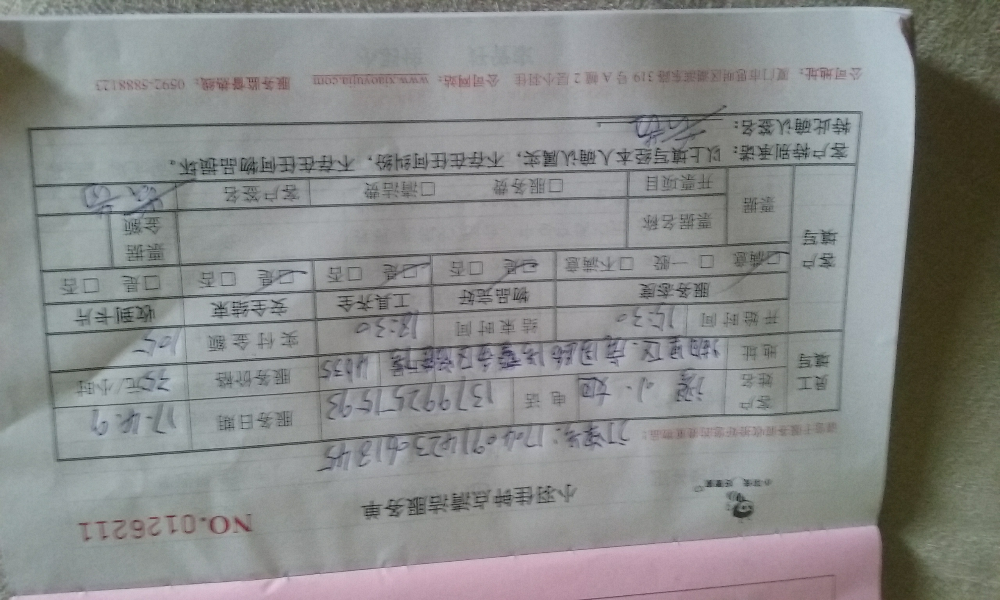 小羽佳钟点清洁服务单
NO.0126211
订单号：1704091423061845
客户姓名 电话 13799257593 服务日期 17.4.9
地址 服务价格 35元/小时
员工填写
开始时间 15:30 结束时间 18:30 实付金额 105
服务态度 物品完好 工具齐全 安全结束 收到卡片
☑满意 □一般 □不满意 ☑是 □否 ☑是 □否 ☑是 □否 □是 □否
客户填写
票据 票据名称 票据金额
开票项目 □服务费 □清洁费 客户签名
客户特别承诺：以上填写经本人确认属实，不存在任何纠纷，不存在任何物品损坏。
特此确认签名：
公司地址：厦门市思明区湖滨东路 319 号 A 幢 2 层小羽佳 公司网站：www.xiaoyujia.com 服务监督热线：0592-5888123